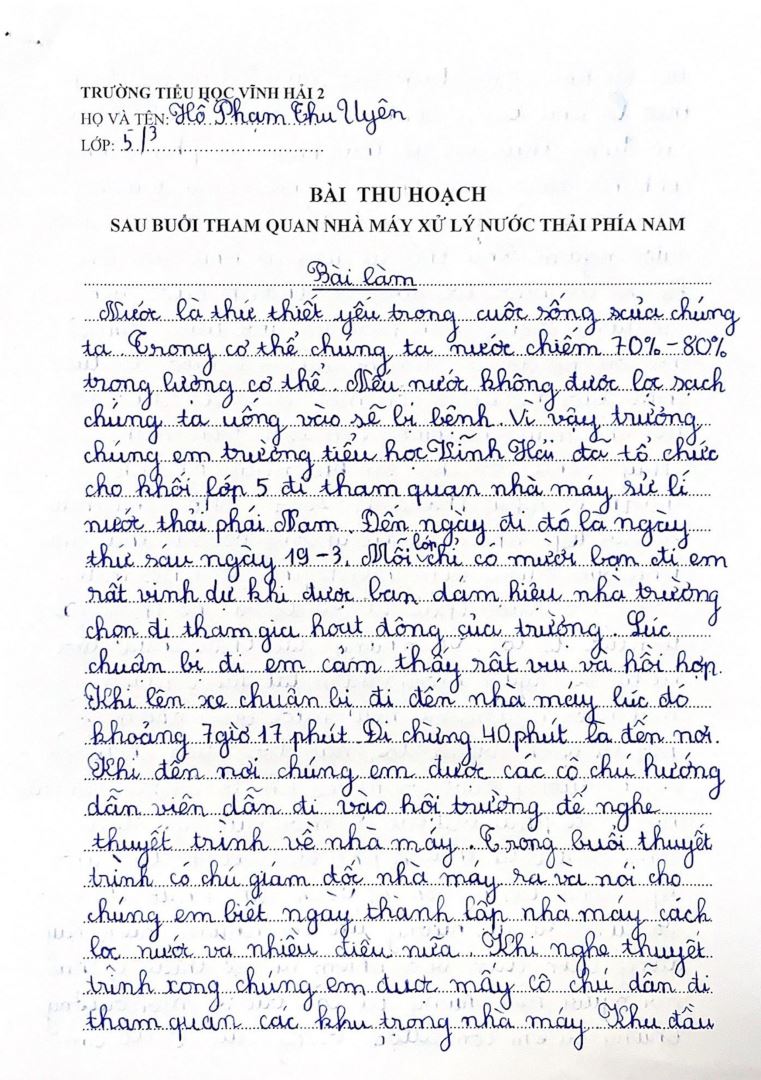 TRƯỜNG TIỂU HỌC VĨNH HẢI 2
HỌ VÀ TÊN: Hồ Phạm Thu Uyên
LỚP: 5/3
BÀI THU HOẠCH
SAU BUỔI THAM QUAN NHÀ MÁY XỬ LÝ NƯỚC THẢI PHÍA NAM
Bài làm
Nước là thứ thiết yếu trong cuộc sống của chúng
ta. Trong cơ thể chúng ta nước chiếm 70% - 80%
trong lượng cơ thể. Nếu nước không được lọc sạch
chúng ta uống vào sẽ bị bệnh. Vì vậy trường
chúng em trường tiểu học Vĩnh Hải đa tổ chức
cho khối lớp 5 đi tham quan nhà máy sử lí
nước thải phái Nam. Đến ngày đi đó là ngày
thứ sáu ngày 19 - 3. Mỗi lớp chỉ có mười bạn đi em
rất vinh dự khi được ban dám hiệu nhà trường
chọn đi tham gia hoạt động của trường. Lúc
chuẩn bị đi em cảm thấy rất vui và hồi hợp.
Khi lên xe chuẩn bị đi đến nhà máy lúc đó
khoảng 7 giờ 17 phút. Đi chừng 40 phút là đến nơi.
Khi đến nơi chúng em được các cô chú hướng
dẫn viên dẫn đi vào hội trường để nghe
thuyết trình về nhà máy. Trong buổi thuyết
trình có chú giám đốc nhà máy ra và nói cho
chúng em biết ngày thành lập nhà máy cách
lọc nước và nhiều điều nữa. Khi nghe thuyết
trình xong chúng em được mấy cô chú dẫn đi
tham quan các khu trong nhà máy Khu đầu